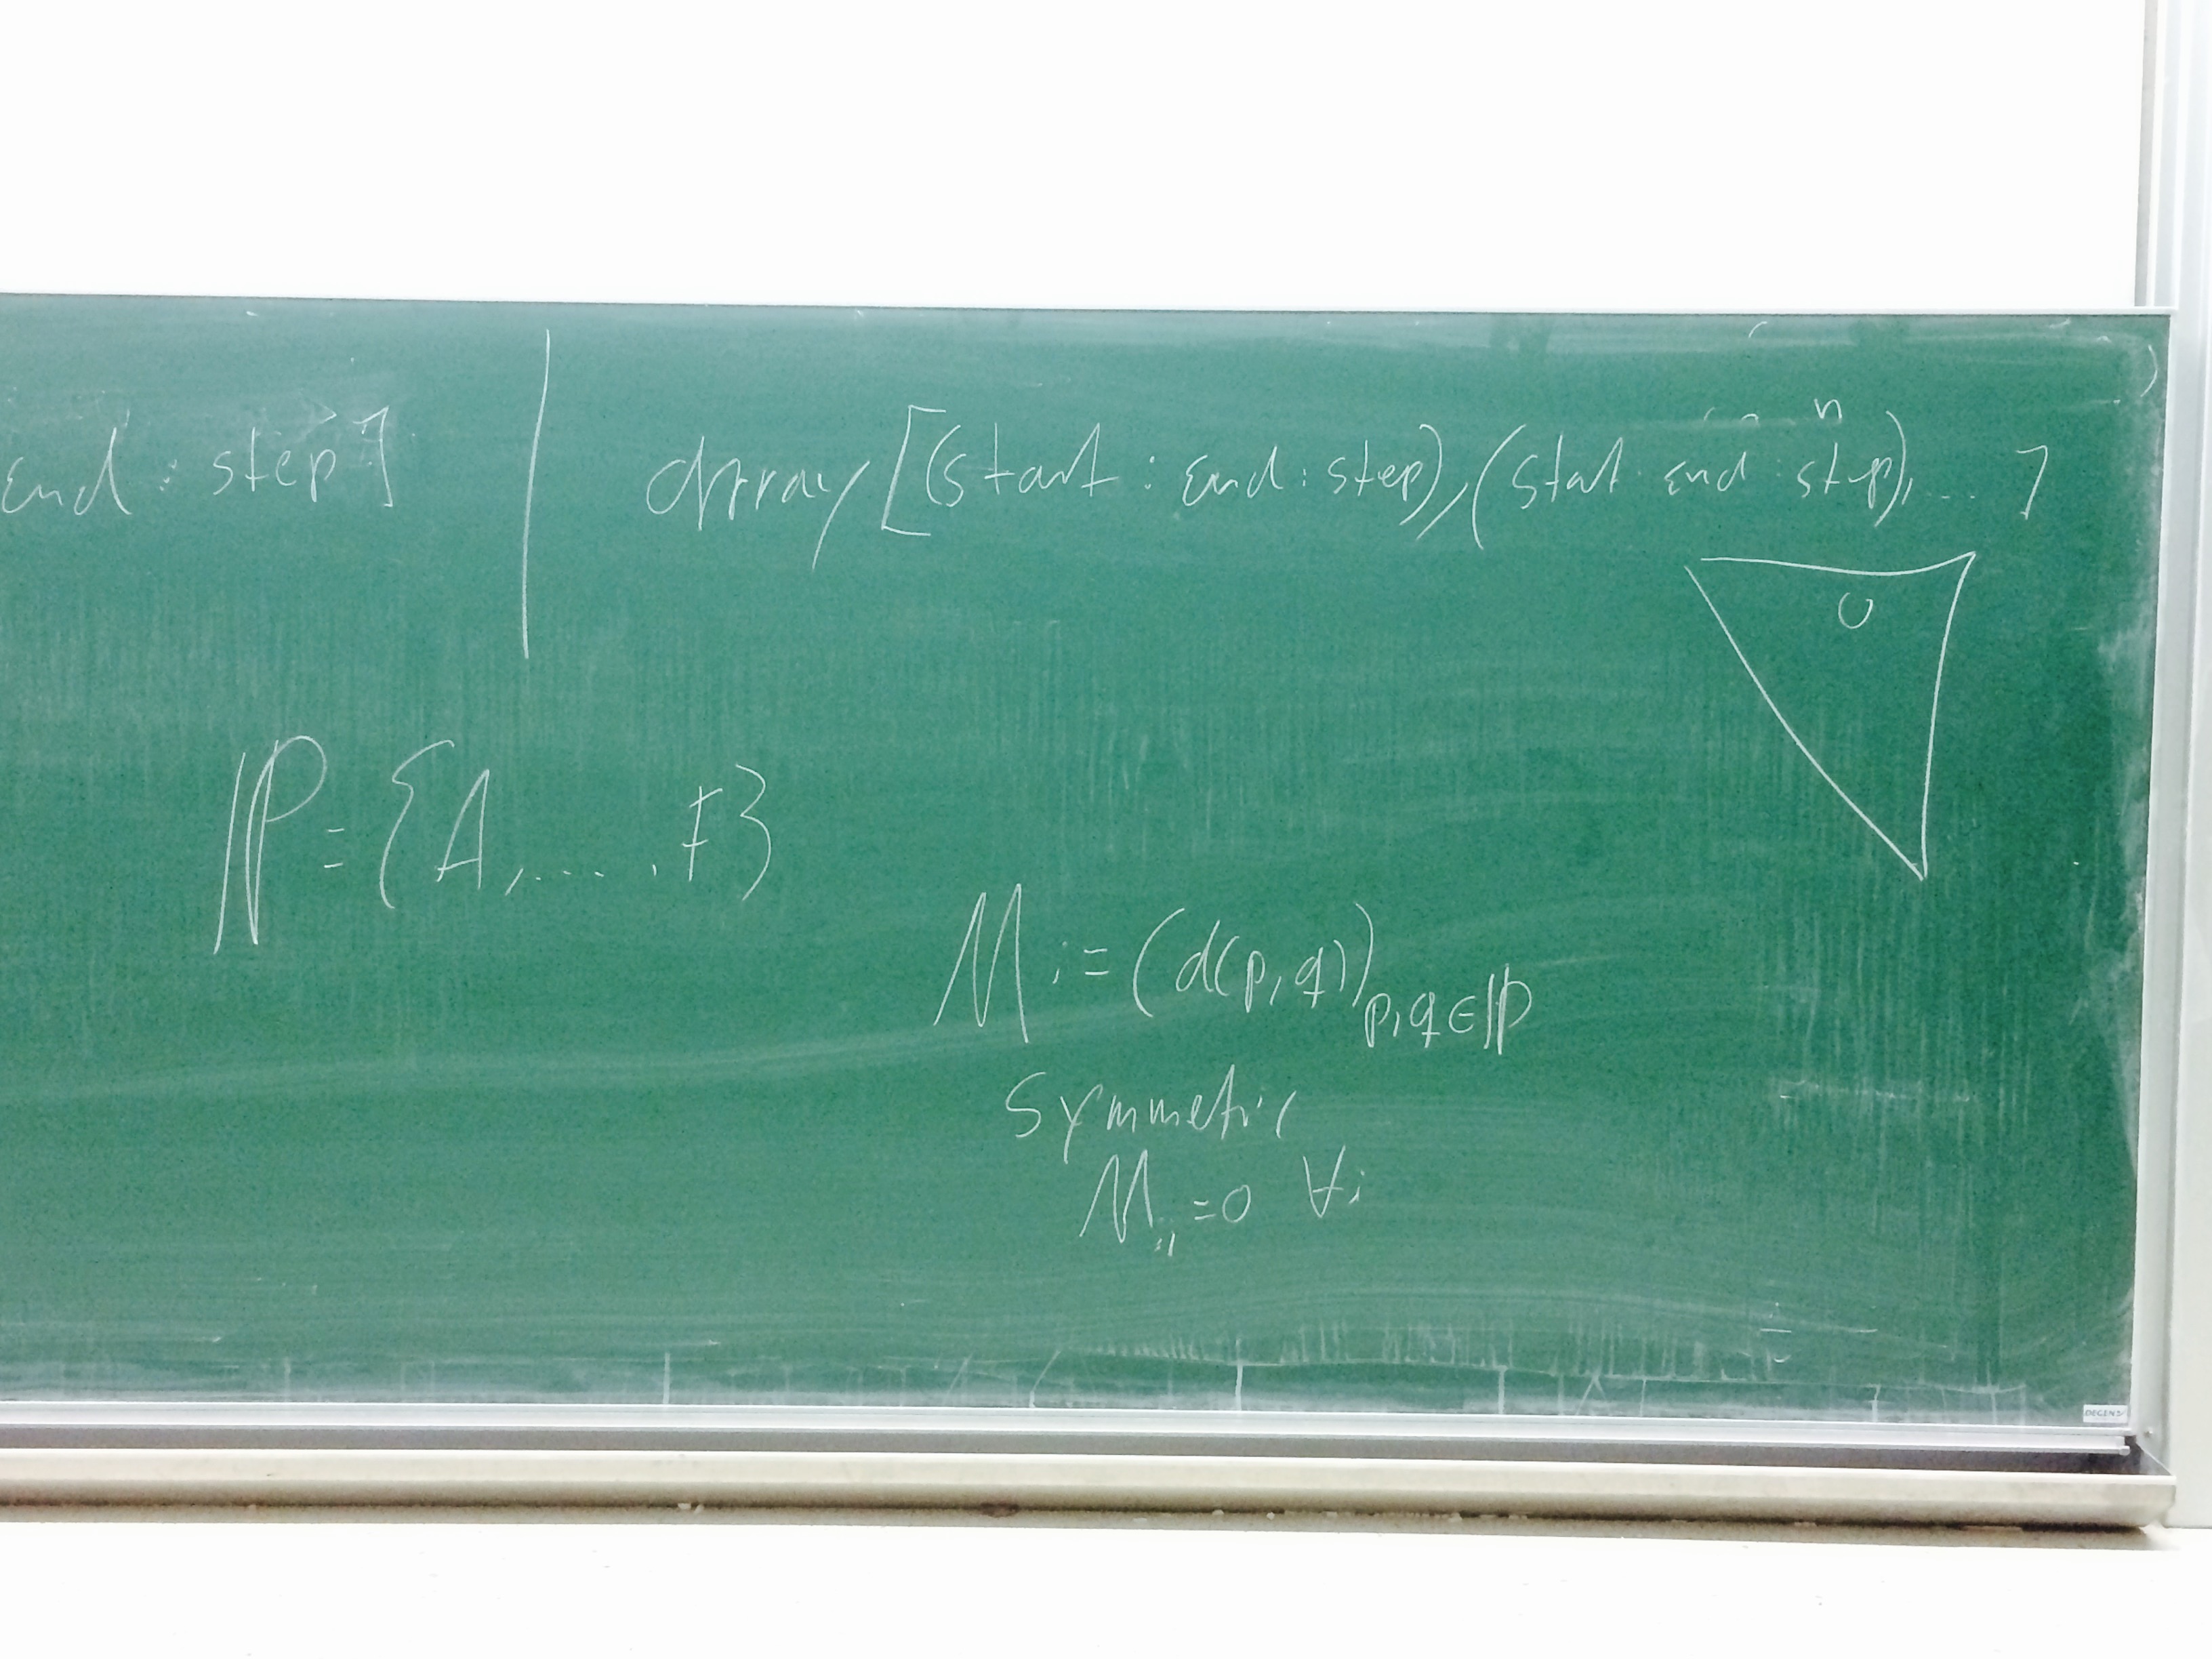 end : step]
array [(start : end : step), (start : end : step), ... ]
n
0
ℙ = {A, ..... , F}
M := (d(p,q))p,q∈ℙ
symmetric
Mii = 0 ∀i